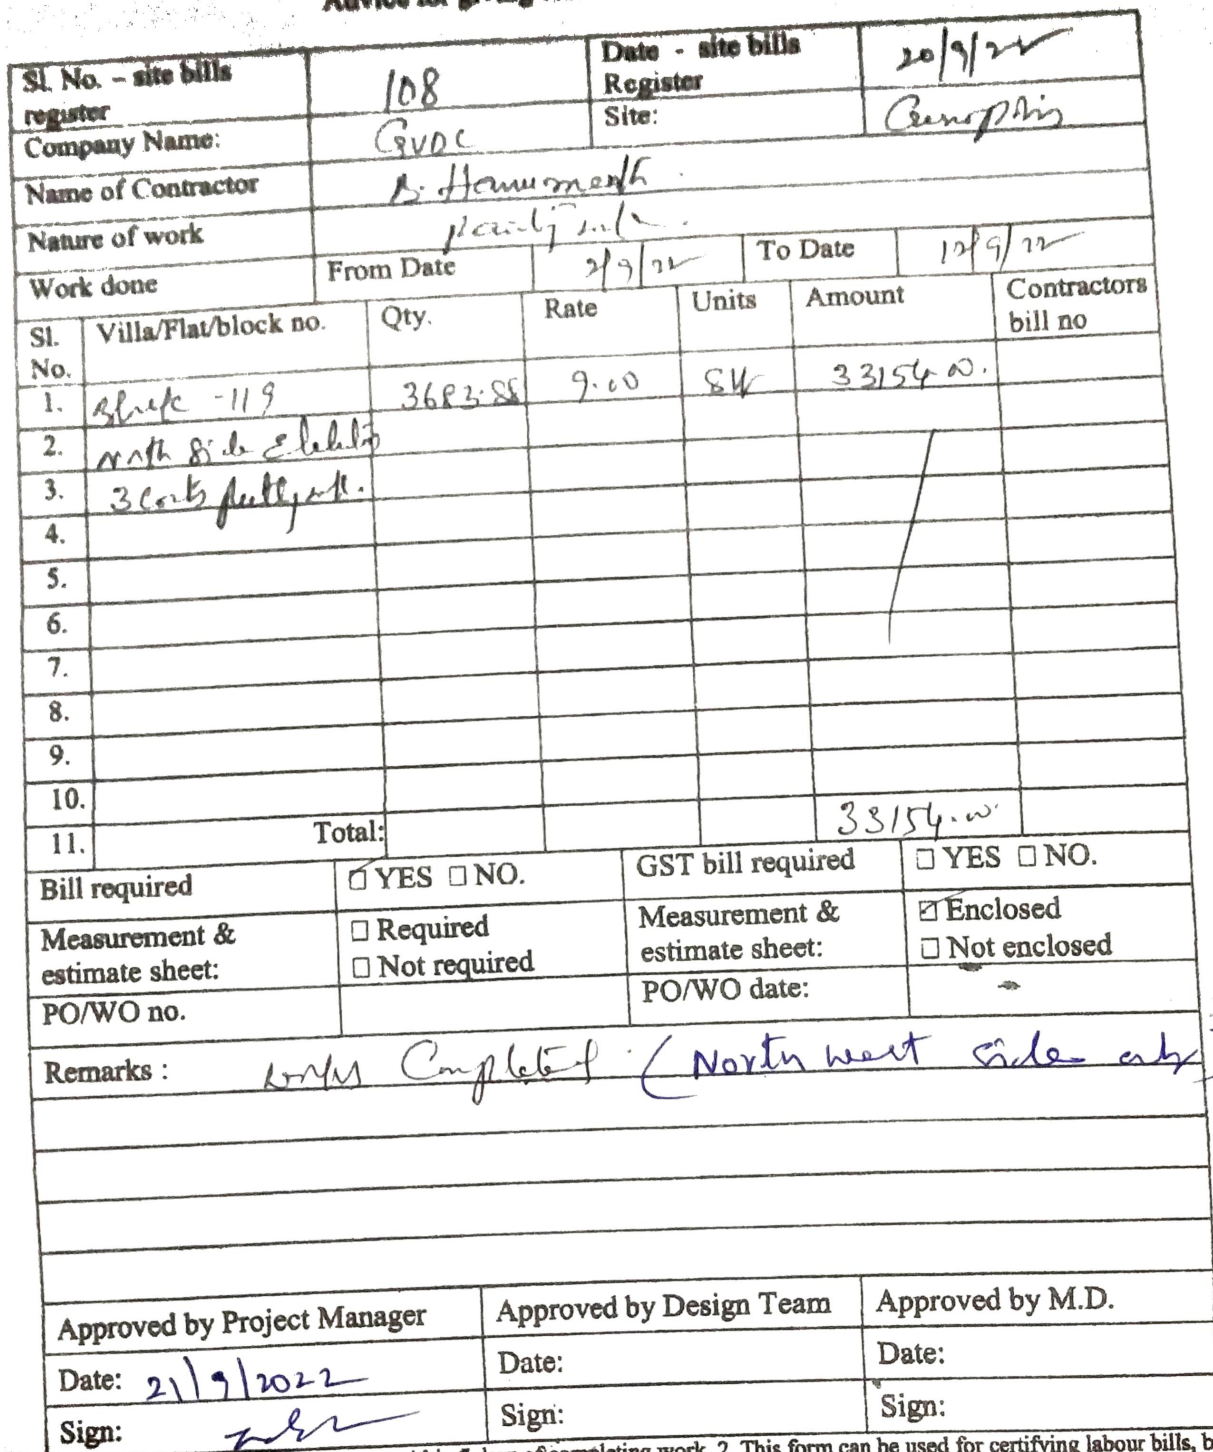 Sl. No. – site bills register 108 Date - site bills Register 20/9/22
Company Name: GVDC Site:
Name of Contractor B. Hanumanth
Nature of work
Work done From Date 2/9/22 To Date 12/9/22
Sl. No. Villa/Flat/block no. Qty. Rate Units Amount Contractors bill no
1. -119 3683.88 9.00 33154.00.
2. Side
3. 3 Coats
4.
5.
6.
7.
8.
9.
10.
11. Total: 33154.00
Bill required YES NO. GST bill required YES NO.
Measurement & estimate sheet: Required Not required Measurement & estimate sheet: Enclosed Not enclosed
PO/WO no. PO/WO date:
Remarks : Completed (North west side only
Approved by Project Manager Approved by Design Team Approved by M.D.
Date: 21/9/2022 Date: Date:
Sign: Sign: Sign:
completing work. 2. This form can be used for certifying labour bills, b